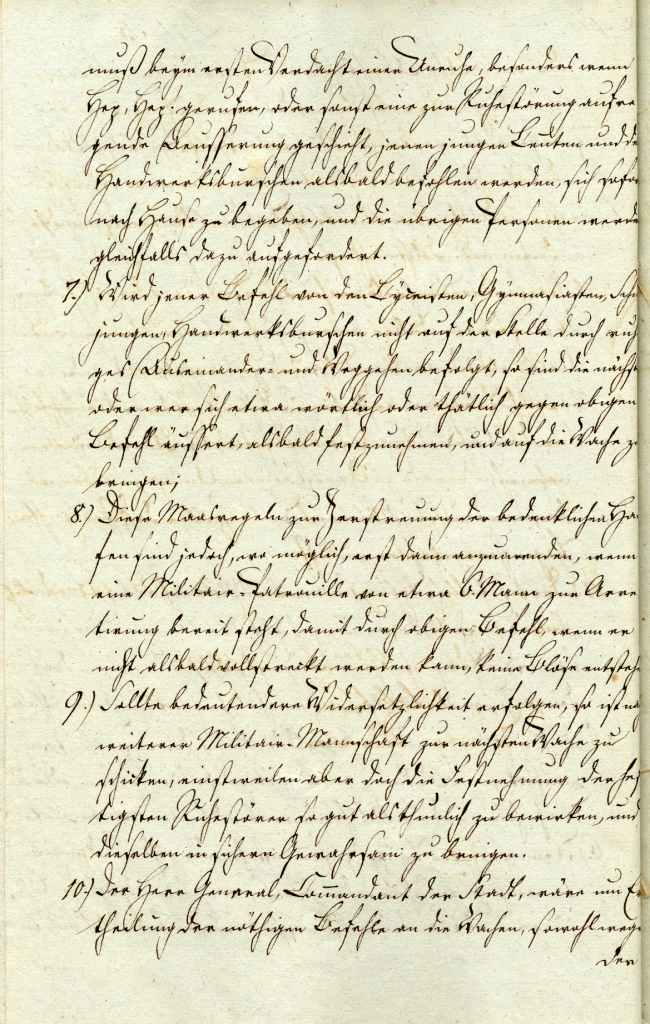 muß beym ersten Verdacht einer Unruhe, besonders wenn
Hep, Hep! gerufen, oder sonst eine zur Ruhestörung aufre
gende Aeusserung geschieht, jenen jungen Leuten und de
Handwerksburschen alsbald befohlen werden, sich sofor
nach Hause zu begeben, und die übrigen Personen werde
gleichfalls dazu aufgefordert.
7.) Wird jener Befehl von den Lyceisten, Gymnasiasten, Schu
jungen, Handwerksburschen nicht auf der Stelle durch ruh
ges Auseinander- und Weggehen befolgt, so sind die nächst
oder wer sich etwa wörtlich oder thätlich gegen obigen
Befehl äussert, alsbald festzunehmen, und auf die Wache z
bringen;
8.) Diese Maasregeln zur Zerstreuung der bedenklichen Ha
fen sind jedoch, wo möglich, erst dann anzuwenden, wenn
eine Militair-Patrouille von etwa 6 Mann zur Arre
tirung bereit steht, damit durch obigen Befehl, wenn er
nicht alsbald vollstreckt werden kann, keine Blöse entsteh
9.) Sollte bedeutendere Widersetzlichkeit erfolgen, so ist na
weiterer Militair-Mannschaft zur nächsten Wache zu
schicken, einstweilen aber doch die Festnehmung der hef
tigsten Ruhestörer so gut als thunlich zu bewirken, und
dieselben in sichern Gewahrsam zu bringen.
10.) Der Herr General, Commandant der Stadt, wäre um Er
theilung der nöthigen Befehle an die Wachen, sowohl wege
der